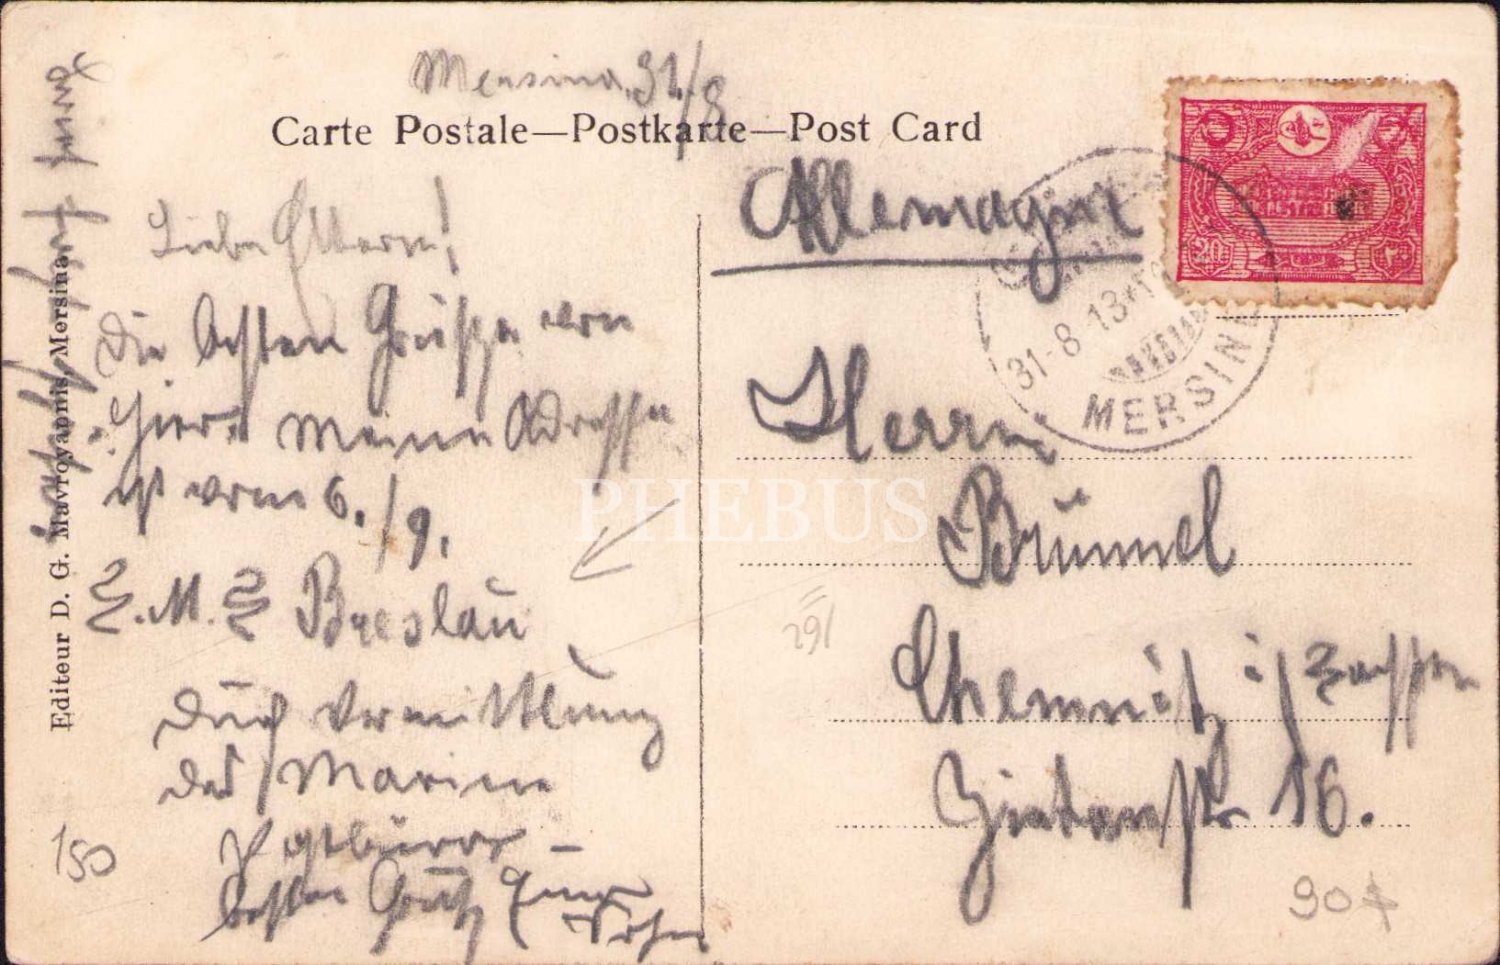 Mersina, 31/8
Carte Postale—Postkarte—Post Card
Liebe Eltern!
Die besten Grüße von
hier. Meine Adresse
ist vom 6./9.
S.M.S Breslau
durch Vermittlung
des Marine
Postbüros
besten Gruß Euer
Sohn
Allemagne
Herrn
Brümmel
Chemnitz i/Sachsen
Zietenstr 16.
20
31-8 13
MERSINE
Editeur D. G. Mavroyannis, Mersina.
PHEBUS
291
150
90